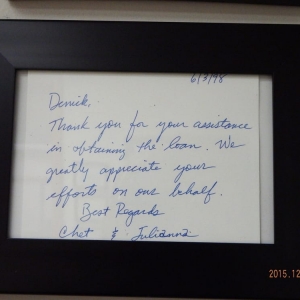 6/3/98
Derick,
Thank you for your assistance
in obtaining the loan. We
greatly appreciate your
efforts on our behalf.
Best Regards
Chet & Julianna
2015.12